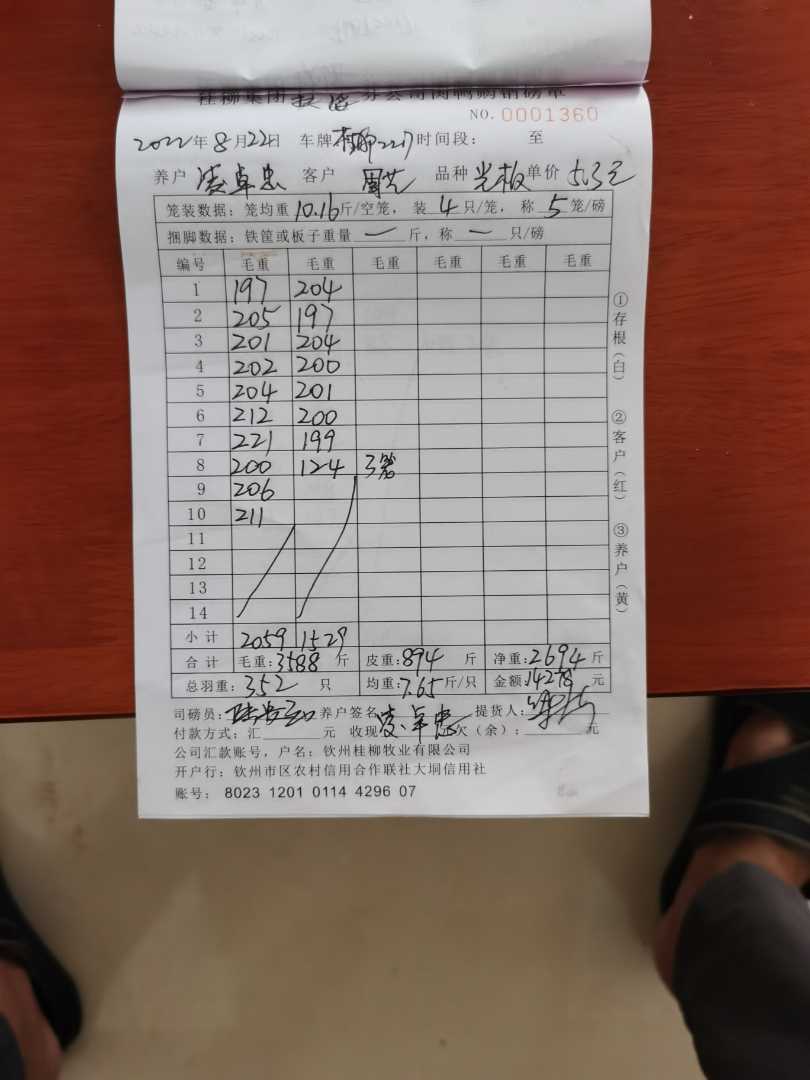 桂柳集团 分公司肉鸭购销磅单
NO. 0001360
2022年8月22日 车牌 2217 时间段： 至
养户 凌卓忠 客户 周艺 品种 光板 单价 5.3元
笼装数据：笼均重 10.16 斤/空笼， 装 4 只/笼， 称 5 笼/磅
捆脚数据：铁筐或板子重量 一 斤，称 一 只/磅
编号 毛重 毛重 毛重 毛重 毛重 毛重
1 197 204
2 205 197
3 201 204
4 202 200
5 204 201
6 212 200
7 221 199
8 200 124 3笼
9 206
10 211
11
12
13
14
小计 2059 1529
合计 毛重：3588 斤 皮重：894 斤 净重：2694 斤
总羽重：352 只 均重：7.65 斤/只 金额：14278 元
司磅员： 养户签名 凌卓忠 提货人：
付款方式：汇 元 收现 欠（余）： 元
公司汇款账号，户名：钦州桂柳牧业有限公司
开户行：钦州市区农村信用合作联社大垌信用社
账号： 8023 1201 0114 4296 07
①存根（白） ②客户（红） ③养户（黄）